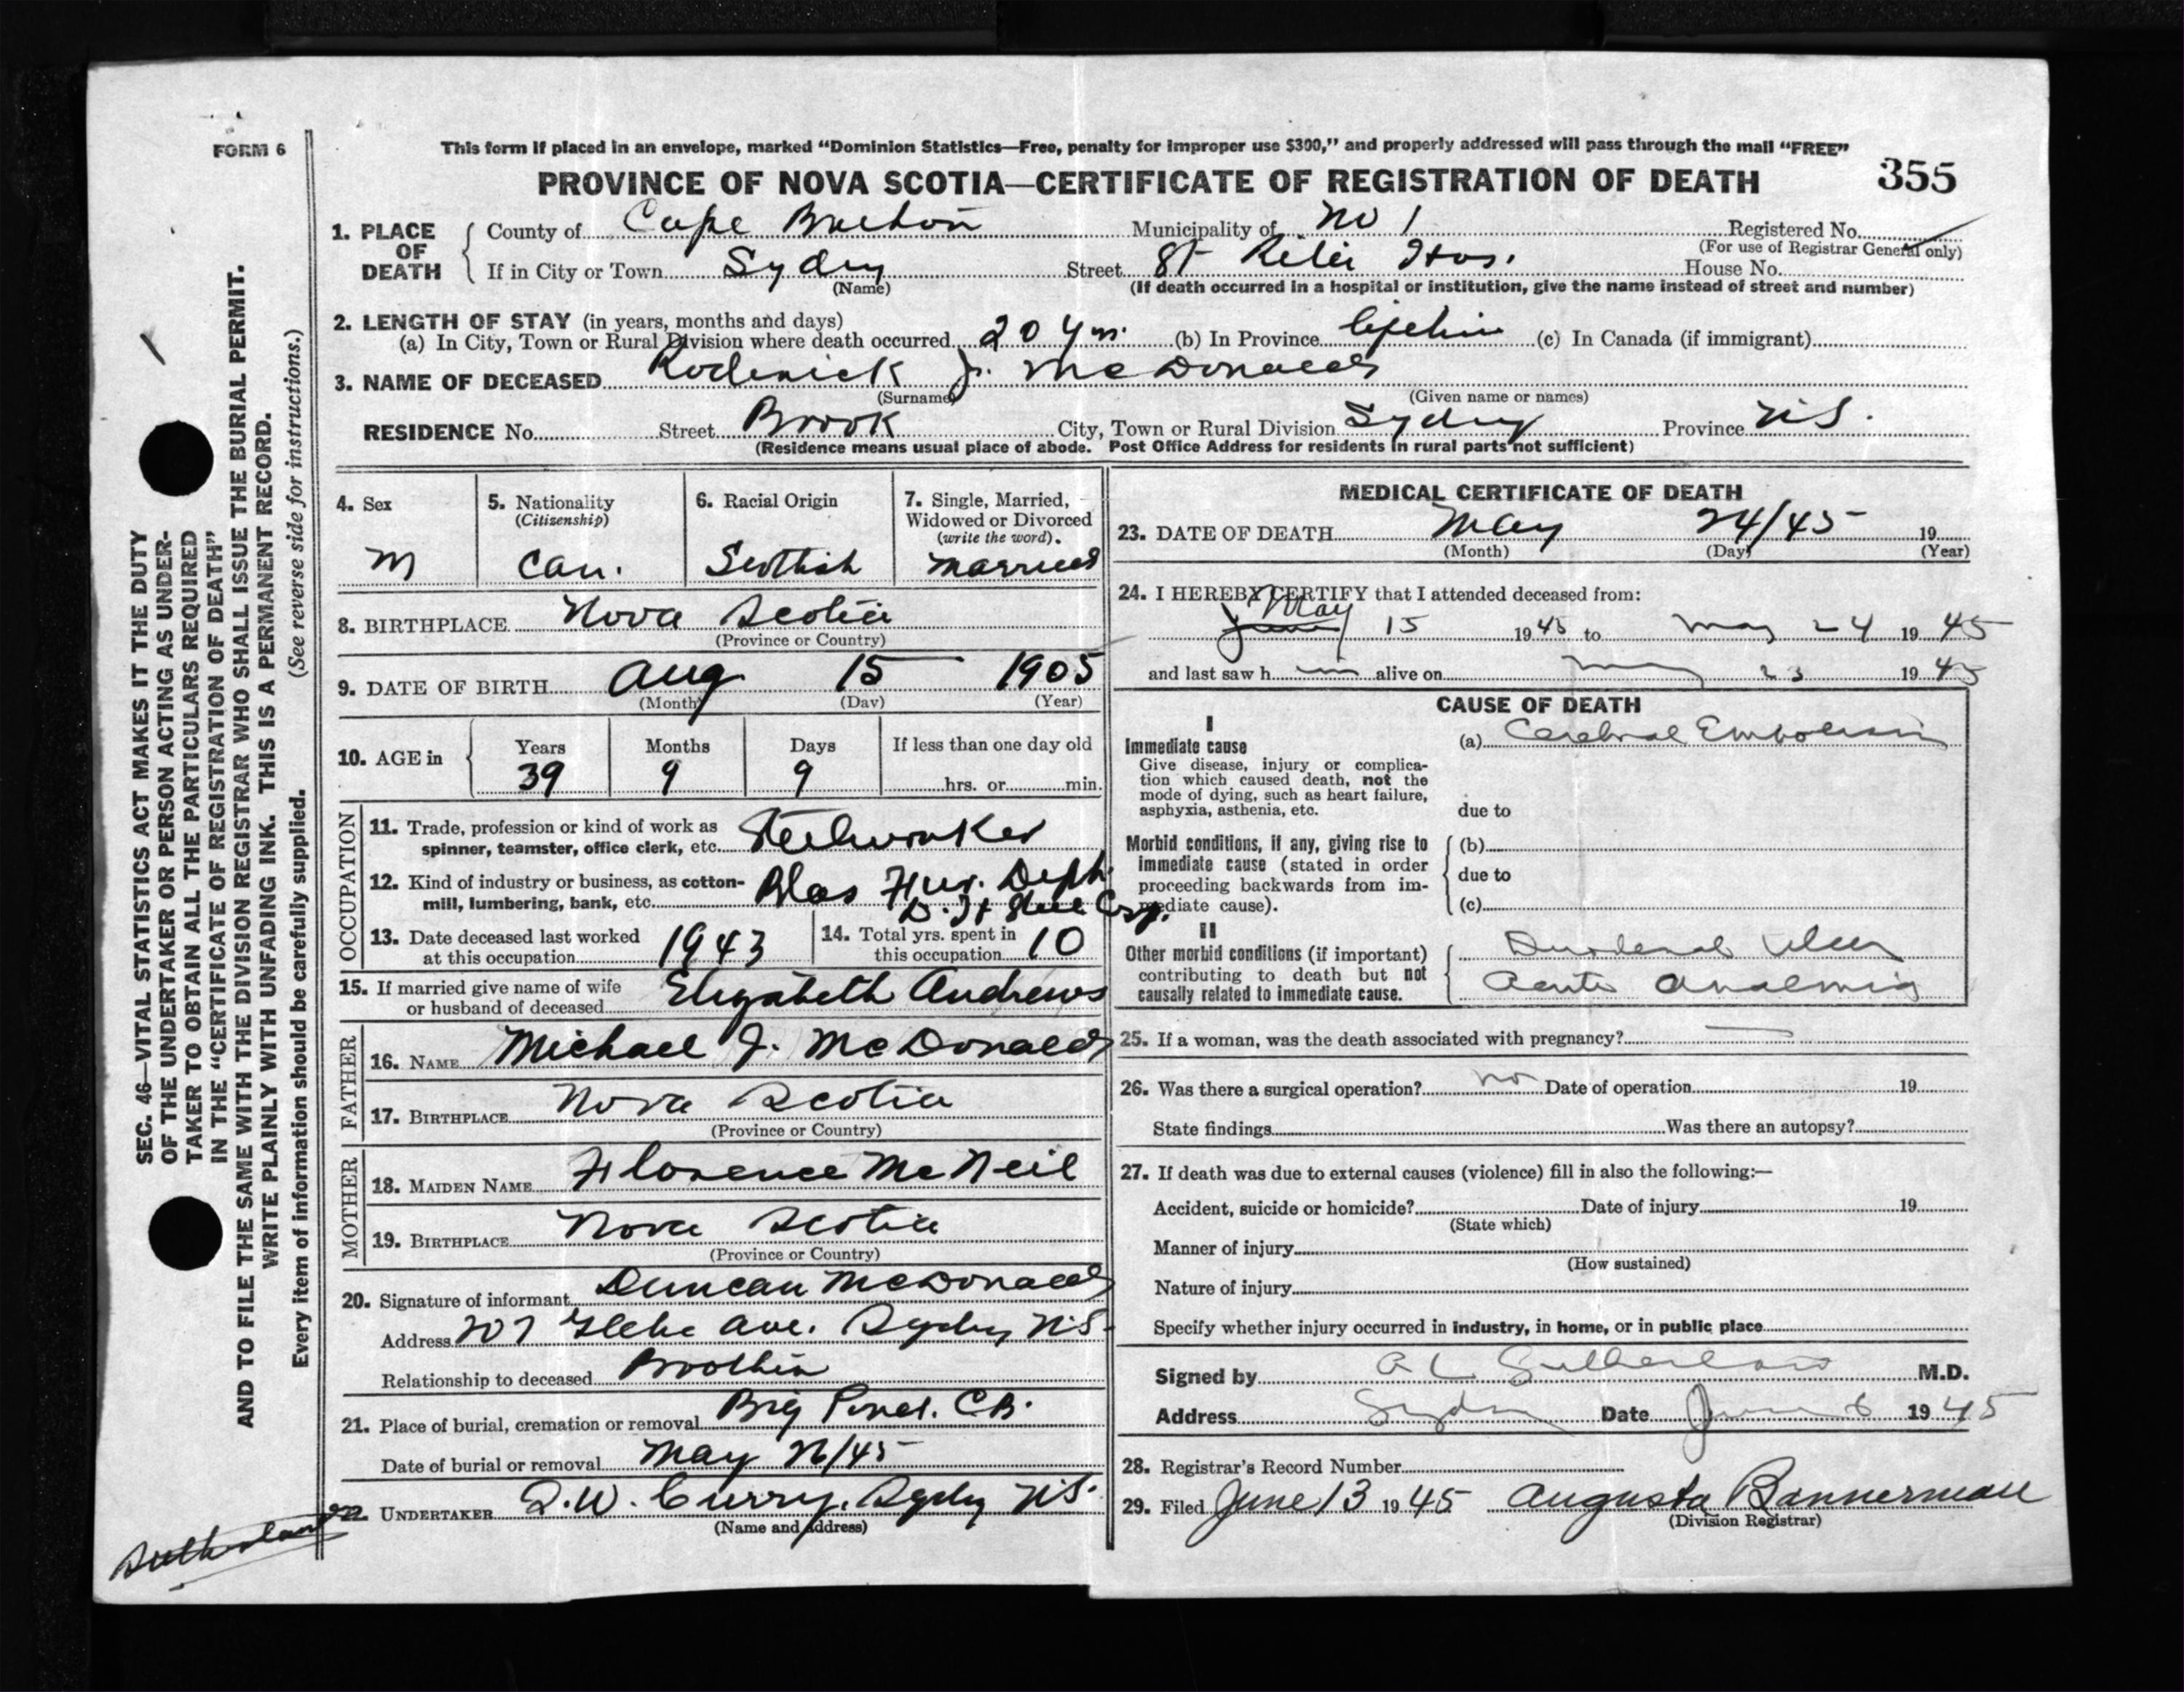 FORM 6
This form if placed in an envelope, marked "Dominion Statistics—Free, penalty for improper use $300," and properly addressed will pass through the mail "FREE"
PROVINCE OF NOVA SCOTIA—CERTIFICATE OF REGISTRATION OF DEATH
355
1. PLACE OF DEATH
County of Cape Breton Municipality of No 1 Registered No.
(For use of Registrar General only)
If in City or Town Sydney Street St Rita Hos. House No.
(Name) (If death occurred in a hospital or institution, give the name instead of street and number)
2. LENGTH OF STAY (in years, months and days)
(a) In City, Town or Rural Division where death occurred 20 yrs. (b) In Province Lifetime (c) In Canada (if immigrant)
3. NAME OF DECEASED Roderick J. McDonald
(Surname) (Given name or names)
RESIDENCE No. Street Brook City, Town or Rural Division Sydney Province N.S.
(Residence means usual place of abode. Post Office Address for residents in rural parts not sufficient)
4. Sex
M
5. Nationality
(Citizenship)
Can.
6. Racial Origin
Scottish
7. Single, Married,
Widowed or Divorced
(write the word).
Married
8. BIRTHPLACE Nova Scotia
(Province or Country)
9. DATE OF BIRTH Aug 15 1905
(Month) (Day) (Year)
10. AGE in
Years Months Days If less than one day old
39 9 9 hrs. or min.
OCCUPATION
11. Trade, profession or kind of work as
spinner, teamster, office clerk, etc. Steelworker
12. Kind of industry or business, as cotton-
mill, lumbering, bank, etc. Blas Fur. Dept.
D. I & Steel Corp.
13. Date deceased last worked
at this occupation 1943
14. Total yrs. spent in
this occupation 10
15. If married give name of wife
or husband of deceased Elizabeth Andrews
FATHER
16. NAME Michael J. McDonald
17. BIRTHPLACE Nova Scotia
(Province or Country)
MOTHER
18. MAIDEN NAME Florence McNeil
19. BIRTHPLACE Nova Scotia
(Province or Country)
20. Signature of informant Duncan McDonald
Address 207 Glebe Ave. Sydney N.S.
Relationship to deceased Brother
21. Place of burial, cremation or removal Big Pond. C.B.
Date of burial or removal May 26/45
22. UNDERTAKER Curry, Sydney N.S.
(Name and address)
Sutherland
MEDICAL CERTIFICATE OF DEATH
23. DATE OF DEATH May 24/45 19
(Month) (Day) (Year)
24. I HEREBY CERTIFY that I attended deceased from:
May
15 1945 to May 24 1945
and last saw him alive on May 23 1945
CAUSE OF DEATH
I
Immediate cause
Give disease, injury or complica-
tion which caused death, not the
mode of dying, such as heart failure,
asphyxia, asthenia, etc.
(a) Cerebral Embolism
due to
Morbid conditions, if any, giving rise to
immediate cause (stated in order
proceeding backwards from im-
mediate cause).
(b)
due to
(c)
II
Other morbid conditions (if important)
contributing to death but not
causally related to immediate cause.
Duodenal Ulcer
Acute Anaemia
25. If a woman, was the death associated with pregnancy?
26. Was there a surgical operation? no Date of operation 19
State findings Was there an autopsy?
27. If death was due to external causes (violence) fill in also the following:—
Accident, suicide or homicide? Date of injury 19
(State which)
Manner of injury
(How sustained)
Nature of injury
Specify whether injury occurred in industry, in home, or in public place
Signed by A L Sutherland M.D.
Address Sydney Date June 6 1945
28. Registrar's Record Number
29. Filed June 13 1945 Augusta Bannerman
(Division Registrar)
SEC. 46—VITAL STATISTICS ACT MAKES IT THE DUTY
OF THE UNDERTAKER OR PERSON ACTING AS UNDER-
TAKER TO OBTAIN ALL THE PARTICULARS REQUIRED
IN THE "CERTIFICATE OF REGISTRATION OF DEATH"
AND TO FILE THE SAME WITH THE DIVISION REGISTRAR WHO SHALL ISSUE THE BURIAL PERMIT.
WRITE PLAINLY WITH UNFADING INK. THIS IS A PERMANENT RECORD.
Every item of information should be carefully supplied. (See reverse side for instructions.)